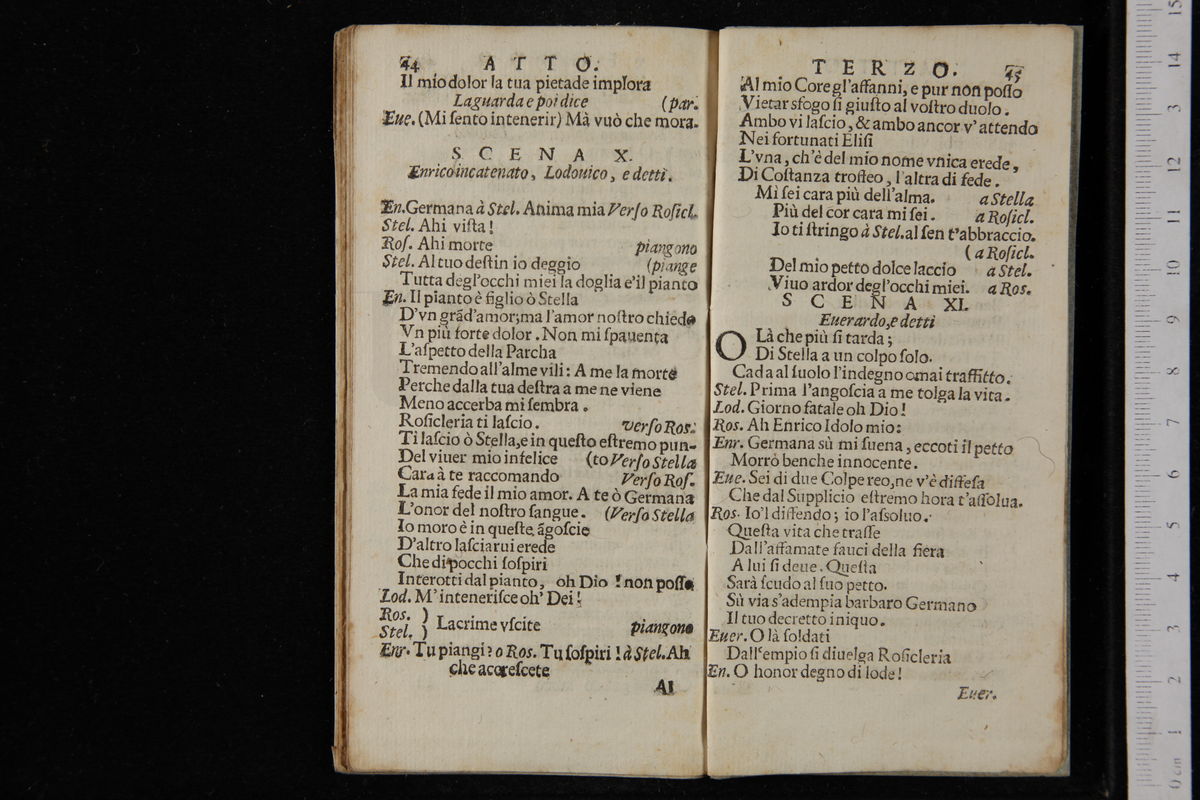 44 ATTO.
Il mio dolor la tua pietade implora
La guarda e poi dice (par.
Eue. (Mi ſento intenerir) Mà vuò che mora.
SCENA X.
Enrico incatenato, Lodouico, e detti.
En. Germana à Stel. Anima mia Verſo Roſicl.
Stel. Ahi viſta!
Roſ. Ahi morte piangono
Stel. Al tuo deſtin io deggio (piange
Tutta degl'occhi miei la doglia e'il pianto
En. Il pianto è figlio ò Stella
D'vn grãd'amor; ma l'amor noſtro chiede
Vn più forte dolor. Non mi ſpauenta
L'aſpetto della Parcha
Tremendo all'alme vili: A me la morte
Perche dalla tua deſtra a me ne viene
Meno accerba mi ſembra.
Roſicleria ti laſcio. verſo Ros.
Ti laſcio ò Stella, e in queſto eſtremo pun-
Del viuer mio infelice (to Verſo Stella
Cara à te raccomando Verſo Roſ.
La mia fede il mio amor. A te ò Germana
L'onor del noſtro ſangue. (Verſo Stella
Io moro è in queſte ãgoſcie
D'altro laſciarui erede
Che di pocchi ſoſpiri
Interotti dal pianto, oh Dio! non poſſo
Lod. M'inteneriſce oh' Dei!
Ros. )
Stel. ) Lacrime vſcite piangono
Enr. Tu piangi? o Ros. Tu ſoſpiri! à Stel. Ah
che accreſcete
Al
TERZO. 45
Al mio Core gl'affanni, e pur non poſſo
Vietar sfogo ſi giuſto al voſtro duolo.
Ambo vi laſcio, & ambo ancor v'attendo
Nei fortunati Eliſi
L'vna, ch'è del mio nome vnica erede,
Di Coſtanza trofteo, l'altra di fede.
Mi ſei cara più dell'alma. a Stella
Più del cor cara mi ſei. a Roſicl.
Io ti ſtringo à Stel. al ſen t'abbraccio.
( a Roſicl.
Del mio petto dolce laccio a Stel.
Viuo ardor degl'occhi miei. a Ros.
SCENA XI.
Euerardo, e detti
O Là che più ſi tarda;
Di Stella a un colpo ſolo.
Cada al ſuolo l'indegno omai traffitto.
Stel. Prima l'angoſcia a me tolga la vita.
Lod. Giorno fatale oh Dio!
Ros. Ah Enrico Idolo mio:
Enr. Germana sù mi ſuena, eccoti il petto
Morrò benche innocente.
Eue. Sei di due Colpe reo, ne v'è diffeſa
Che dal Supplicio eſtremo hora t'aſſolua.
Ros. Io'l diffendo; io l'aſsoluo.
Queſta vita che traſſe
Dall'affamate fauci della fiera
A lui ſi deue. Queſta
Sarà ſcudo al ſuo petto.
Sù via s'adempia barbaro Germano
Il tuo decretto iniquo.
Euer. O là ſoldati
Dall'empio ſi diuelga Roſicleria
En. O honor degno di lode!
Euer.
0 cm 1 2 3 4 5 6 7 8 9 10 11 12 13 14 15